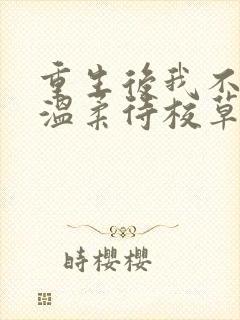 重生後我不
溫柔待校草
時櫻櫻